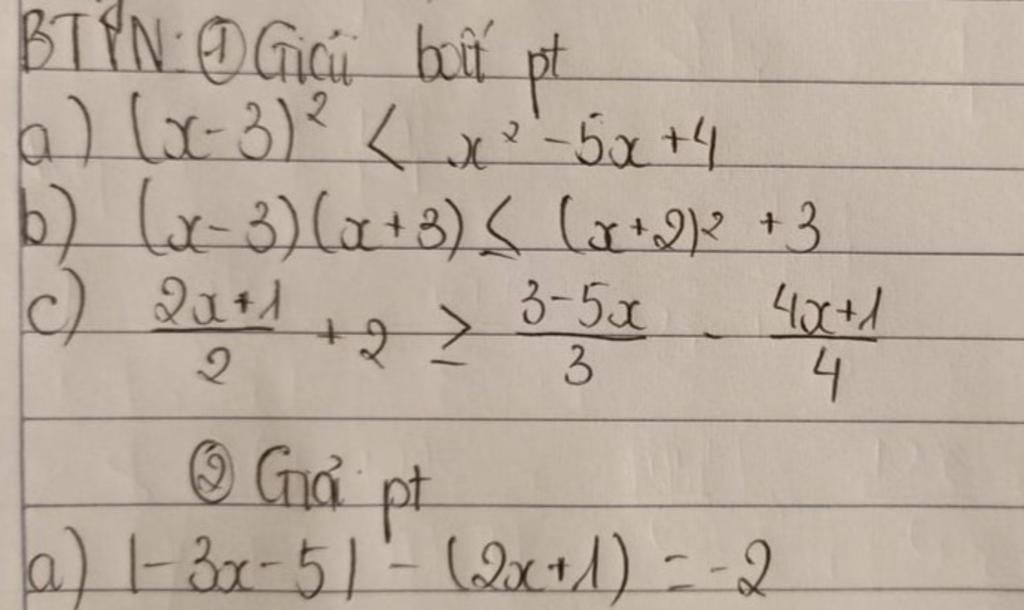 BTVN: ① Giải bất pt
a) (x-3)² < x² -5x+4
b) (x-3)(x+3) ≤ (x+2)² +3
c) (2x+1)/2 + 2 ≥ (3-5x)/3 - (4x+1)/4
② Giải pt
a) |-3x-5| - (2x+1) = -2